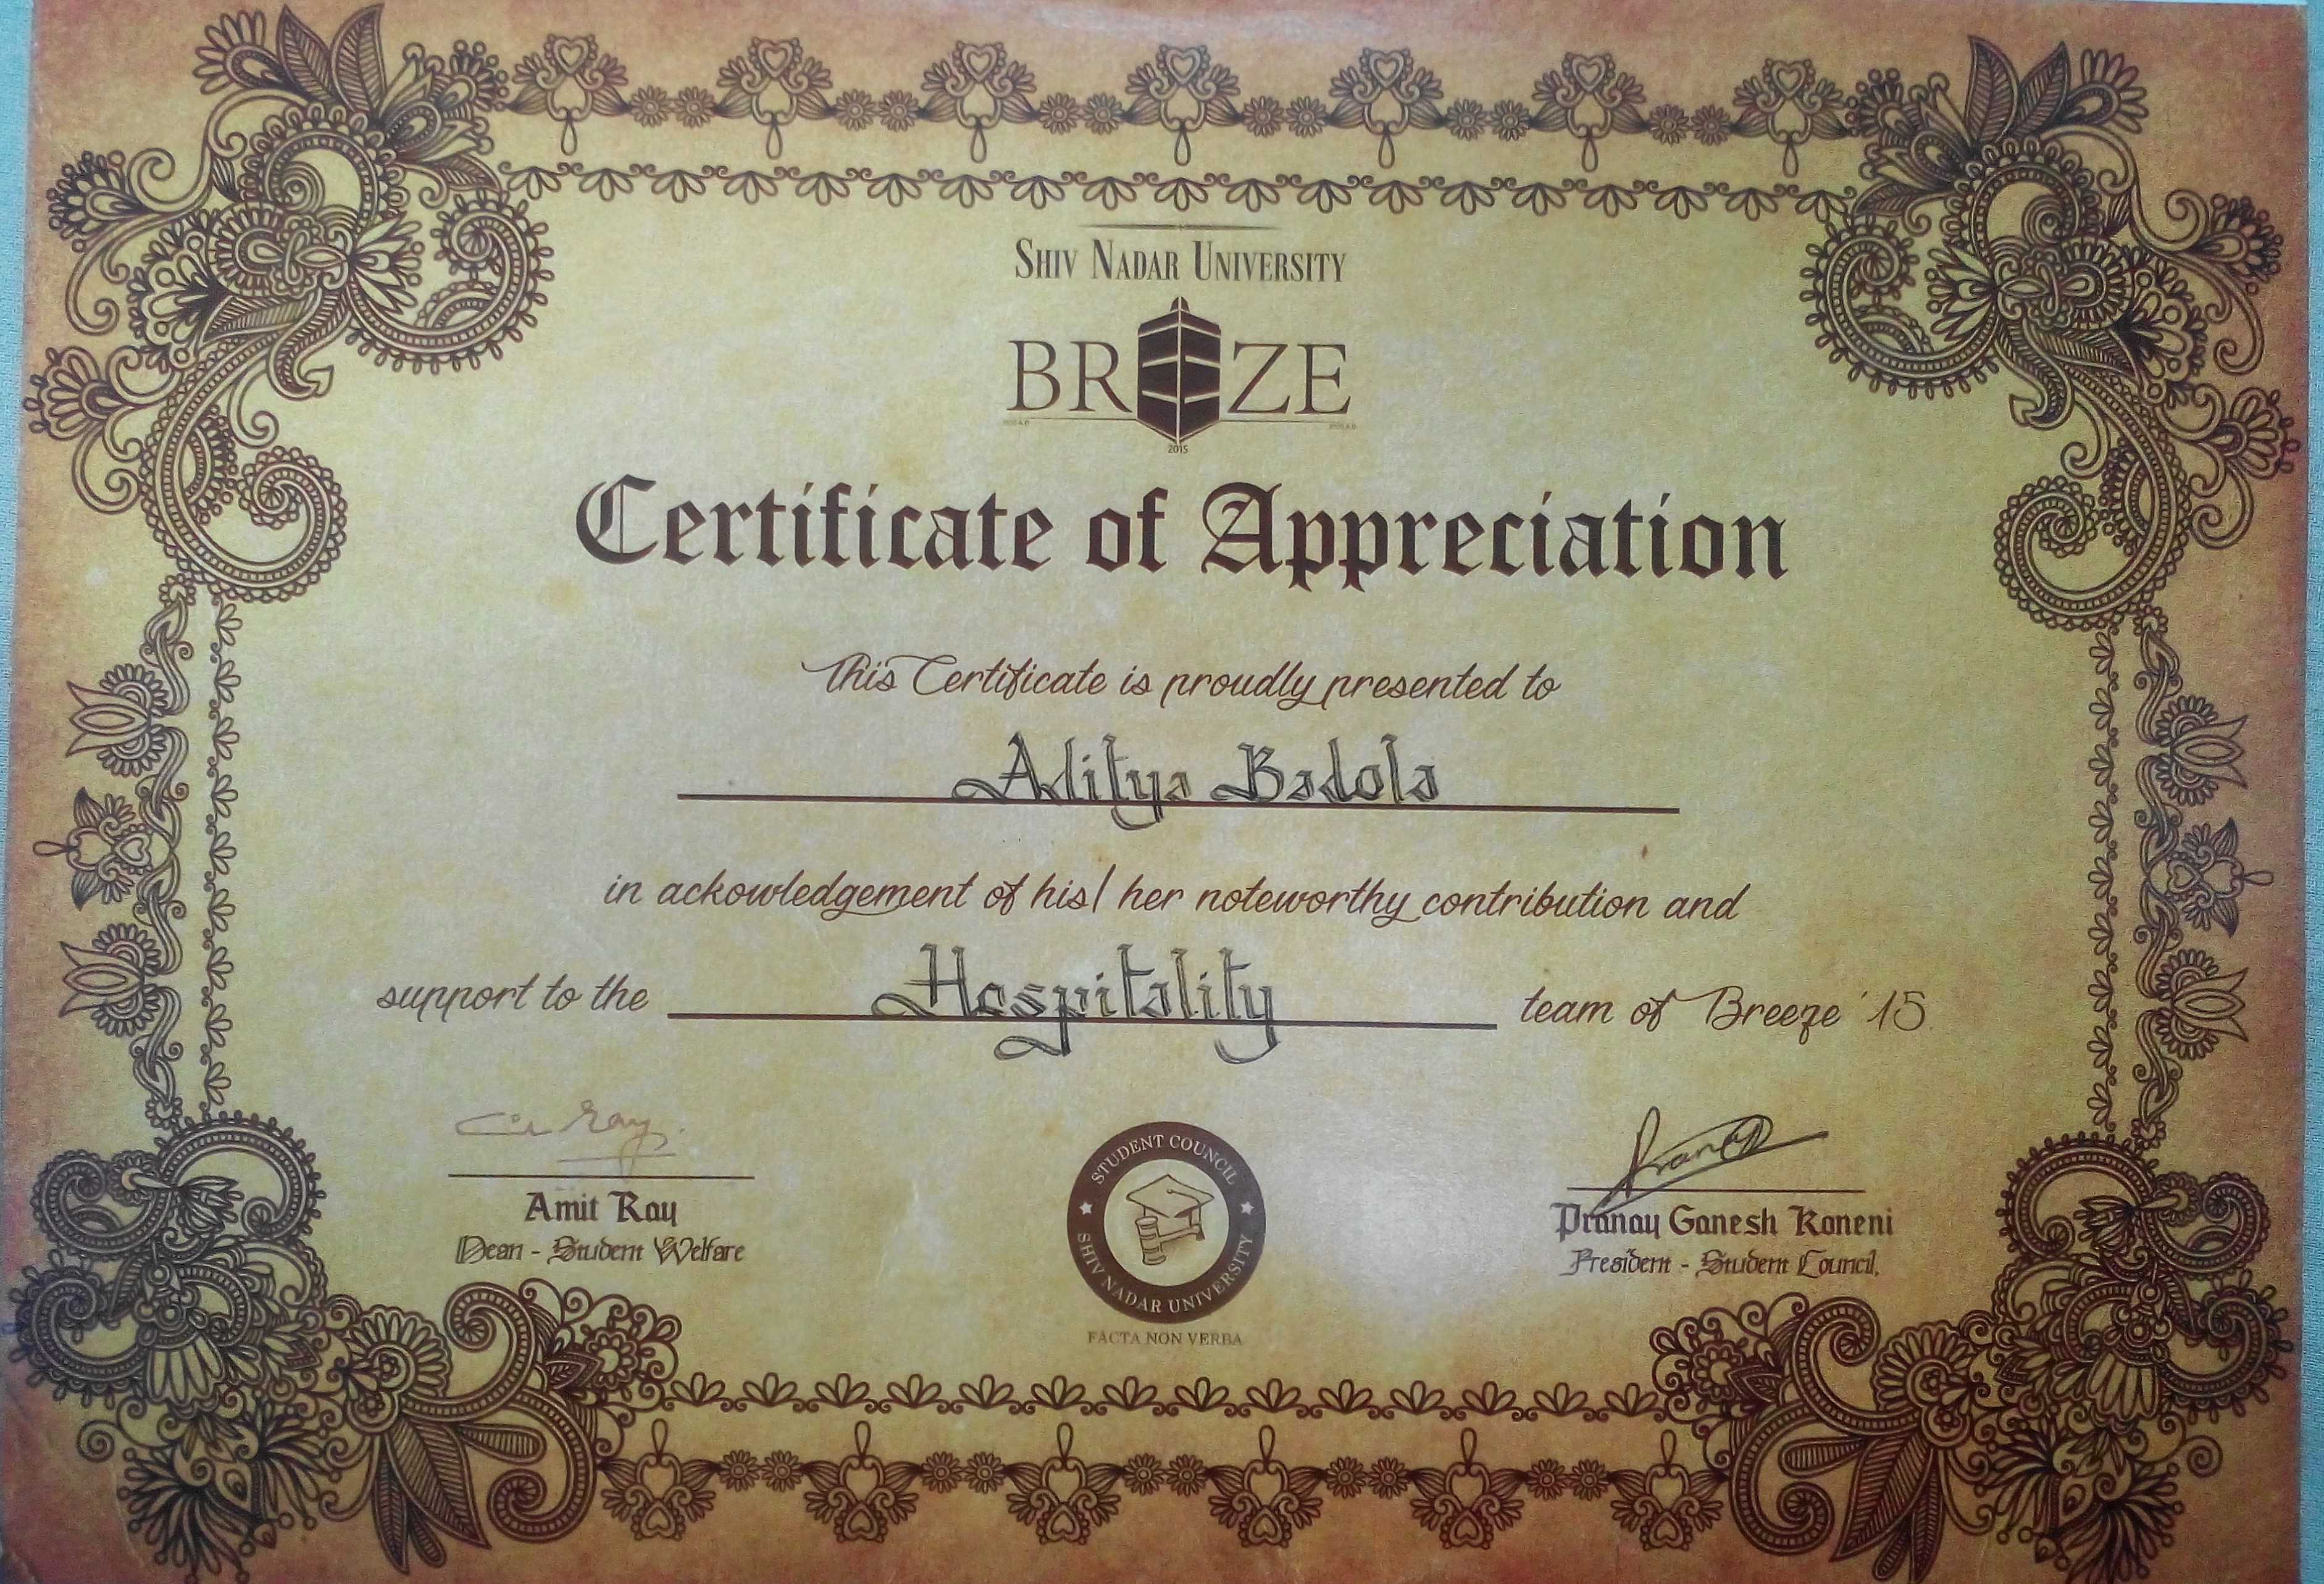 SHIV NADAR UNIVERSITY
BREEZE
2015
Certificate of Appreciation
This Certificate is proudly presented to
Aditya Badola
in ackowledgement of his/ her noteworthy contribution and
support to the Hospitality team of Breeze '15.
Amit Ray
Dean - Student Welfare
STUDENT COUNCIL
SHIV NADAR UNIVERSITY
FACTA NON VERBA
Pranay
Pranay Ganesh Koneni
President - Student Council.